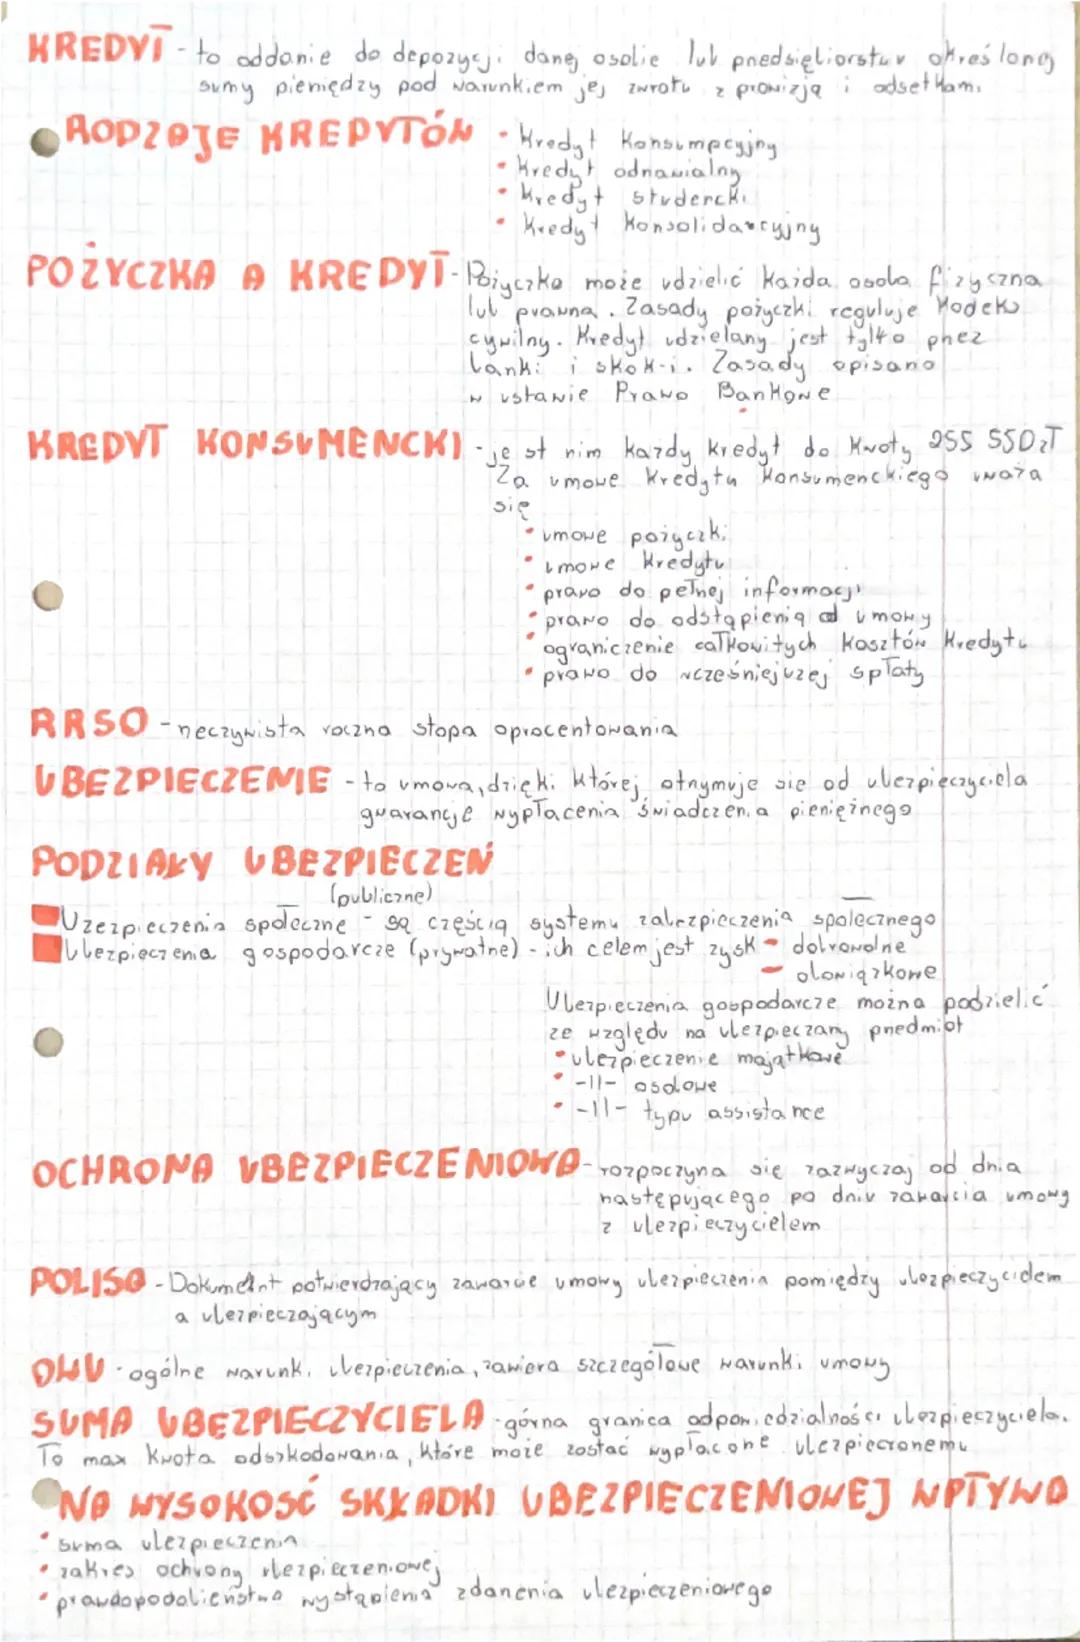 KREDYT - to oddanie do depozycji danej osobie lub przedsiębiorstwu określonej
sumy pieniędzy pod warunkiem jej zwrotu z prowizją i odsetkami
RODZAJE KREDYTÓW • Kredyt Konsumpcyjny
• Kredyt odnawialny
• Kredyt studencki
• Kredyt Konsolidacyjny
POŻYCZKA A KREDYT - Pożyczka może udzielić Każda osoba fizyczna
lub prawna. Zasady pożyczki reguluje Kodeks
cywilny. Kredyt udzielany jest tylko przez
banki i skok-i. Zasady opisano
w ustawie Prawo Bankowe
KREDYT KONSUMENCKI - jest nim Każdy Kredyt do Kwoty 255 550zł
Za umowe Kredytu Konsumenckiego uważa
się
• umowe pożyczki
• umowe Kredytu
• prawo do pełnej informacji
• prawo do odstąpienia od umowy
• ograniczenie całkowitych Kosztów Kredytu
• prawo do wcześniejszej spłaty
RRSO - rzeczywista roczna stopa oprocentowania
UBEZPIECZENIE - to umowa, dzięki Której otrzymuje sie od ubezpieczyciela
gwarancje wypłacenia świadczenia pieniężnego
PODZIAŁY UBEZPIECZEŃ
(publiczne)
Uzezpieczenia społeczne - są częścią systemu zabezpieczenia społecznego
Ubezpieczenia gospodarcze (prywatne) - ich celem jest zysk - dobrowolne
- obowiązkowe
Ubezpieczenia gospodarcze można podzielić
ze względu na ubezpieczany przedmiot
• ubezpieczenie majątkowe
• -||- osobowe
• -||- typu assistance
OCHRONA UBEZPIECZENIOWA - rozpoczyna się zazwyczaj od dnia
następującego po dniu zawarcia umowy
z ubezpieczycielem
POLISA - Dokument potwierdzający zawarcie umowy ubezpieczenia pomiędzy ubezpieczycielem
a ubezpieczającym
OWU - ogólne warunki ubezpieczenia, zawiera szczegółowe warunki umowy
SUMA UBEZPIECZYCIELA - górna granica odpowiedzialności ubezpieczyciela.
To max Kwota odszkodowania, Które może zostać wypłacone ubezpieczonemu
NA WYSOKOŚĆ SKŁADKI UBEZPIECZENIOWEJ WPŁYWA
• suma ubezpieczenia
• zakres ochrony ubezpieczeniowej
• prawdopodobieństwo wystąpienia zdarzenia ubezpieczeniowego